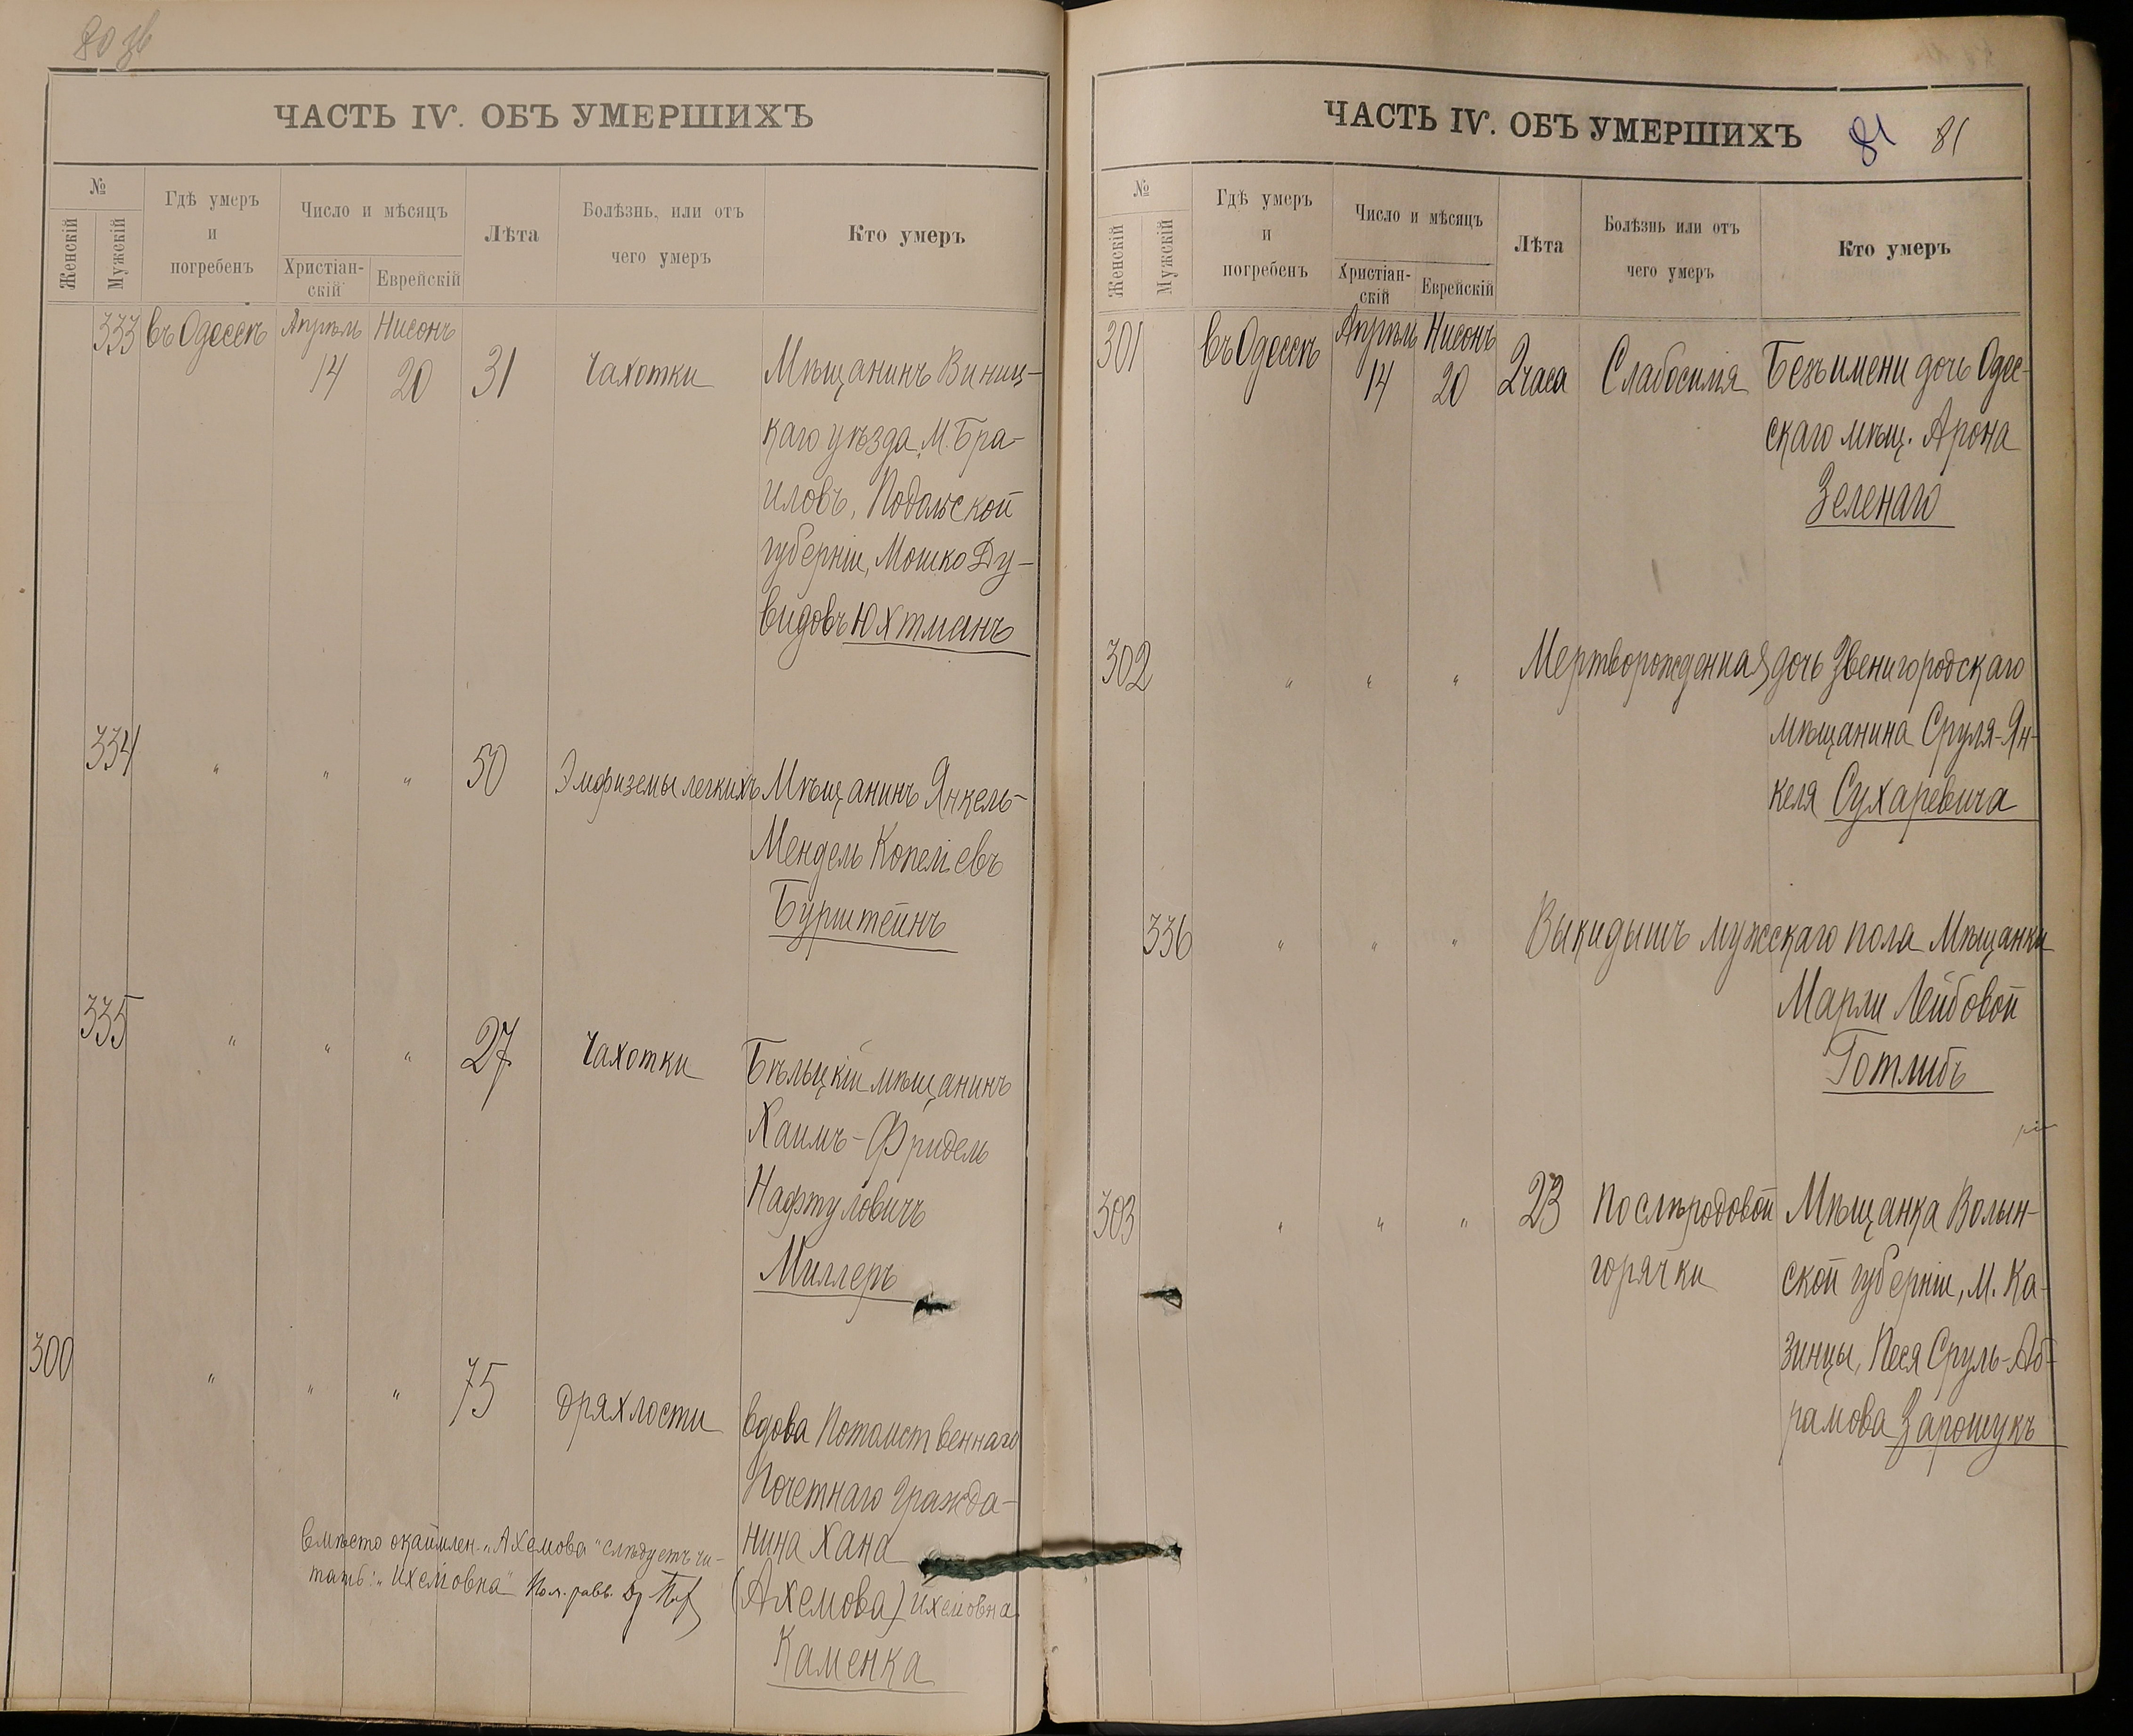 80 зв
ЧАСТЬ IV. ОБЪ УМЕРШИХЪ
№
Женскій
Мужскій
Гдѣ умеръ
и
погребенъ
Число и мѣсяцъ
Христіан-
скій
Еврейскій
Лѣта
Болѣзнь, или отъ
чего умеръ
Кто умеръ
333 въ Одессѣ Апрѣль Нисонъ
14 20 31 Чахотки Мѣщанинъ Винниц-
каго уѣзда, М. Бра-
иловъ, Подольской
губерніи, Мошко Ду-
видовъ Юхтманъ
334 " " " 50 Эмфиземы легкихъ Мѣщанинъ Янкель-
Мендель Копеліевъ
Бурштейнъ
335 " " " 27 Чахотки Бѣльцкій мѣщанинъ
Хаимъ-Фридель
Нафтуловичъ
Миллеръ
300 " " " 75 Дряхлости вдова Потомственнаго
Почетнаго Гражда-
нина Хана
(Ахемова) Ихелiовна
Каменка
Вмѣсто окаймлен. „Ахемова" слѣдуетъ чи-
тать: „Ихелiовна" Пом. равв. Др
ЧАСТЬ IV. ОБЪ УМЕРШИХЪ 81 81
№
Женскій
Мужскій
Гдѣ умеръ
и
погребенъ
Число и мѣсяцъ
Христіан-
скій
Еврейскій
Лѣта
Болѣзнь или отъ
чего умеръ
Кто умеръ
301 въ Одессѣ Апрѣль Нисонъ
14 20 2 часа Слабосилія Безъ имени дочь Одес-
скаго мѣщ. Арона
Зеленаго
302 " " " Мертворожденная дочь Звенигородскаго
мѣщанина Сруля-Ян-
келя Сухаревича
336 " " " Выкидышъ мужскаго пола Мѣщанки
Марли Лейбовой
Готлибъ
303 " " " 23 Послѣродовой Мѣщанка Волын-
горячки ской губерніи, М. Ка-
зинцы, Песя Сруль-Аб-
рамова Зарощукъ